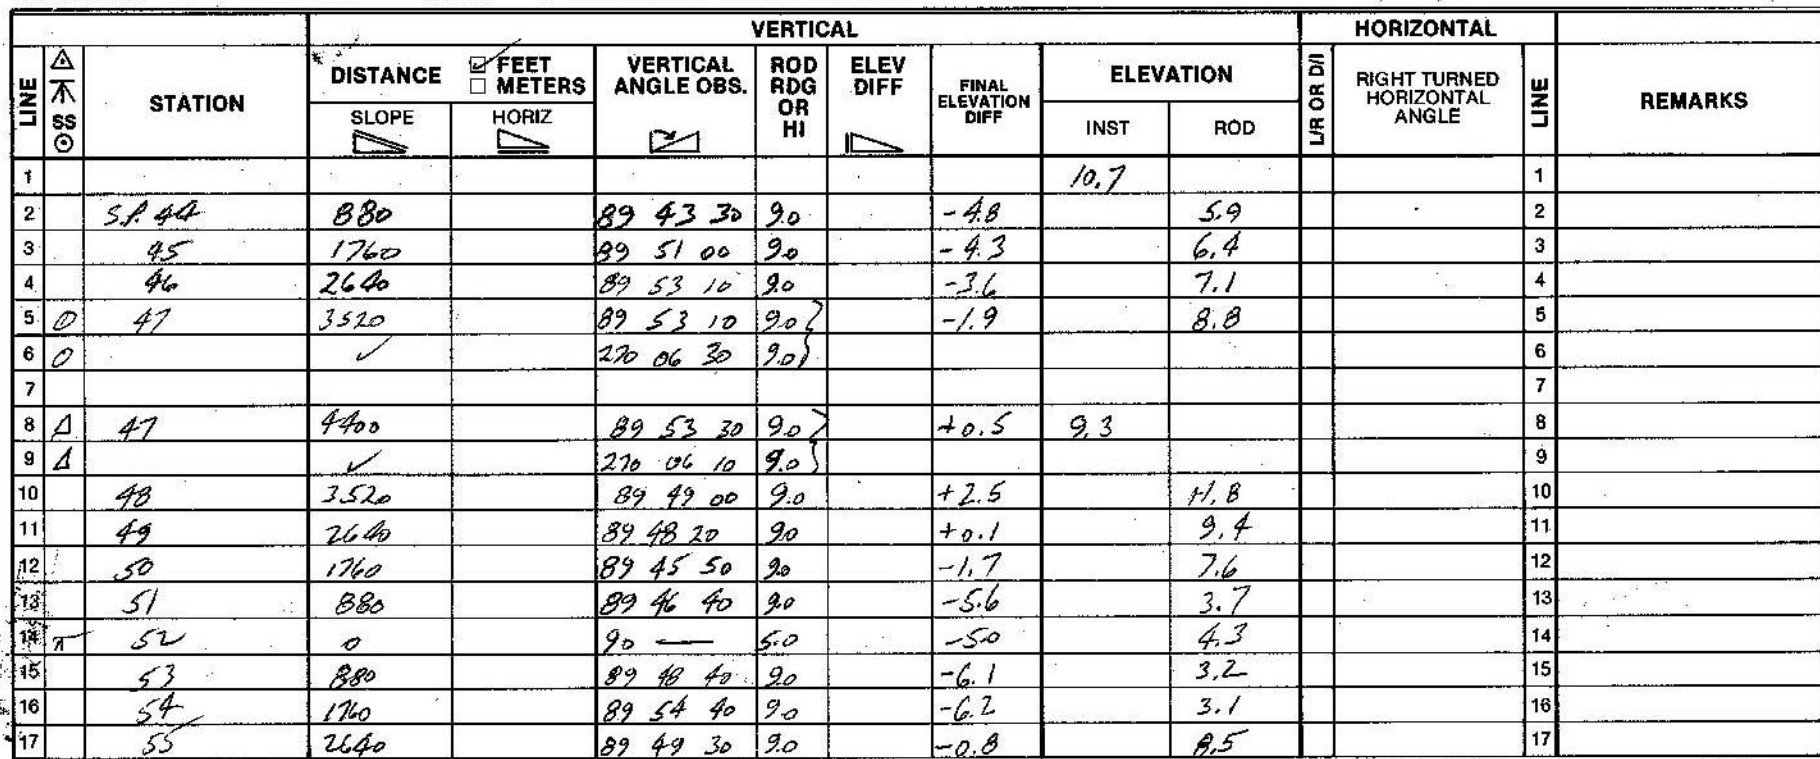 VERTICAL HORIZONTAL
LINE SS STATION DISTANCE ☑ FEET ☐ METERS VERTICAL ANGLE OBS. ROD RDG OR HI ELEV DIFF FINAL ELEVATION DIFF ELEVATION L/R OR D/I RIGHT TURNED HORIZONTAL ANGLE LINE REMARKS
SLOPE HORIZ INST ROD
1 10.7 1
2 S.P. 44 880 89 43 30 9.0 -4.8 5.9 2
3 45 1760 89 51 00 9.0 -4.3 6.4 3
4 46 2640 89 53 10 9.0 -3.6 7.1 4
5 47 3520 89 53 10 9.0 -1.9 8.8 5
6 ✓ 270 06 30 9.0 6
7 7
8 Δ 47 4400 89 53 30 9.0 +0.5 9.3 8
9 Δ ✓ 270 06 10 9.0 9
10 48 3520 89 49 00 9.0 +2.5 11.8 10
11 49 2640 89 48 20 9.0 +0.1 9.4 11
12 50 1760 89 45 50 9.0 -1.7 7.6 12
13 51 880 89 46 40 9.0 -5.6 3.7 13
14 52 0 90 — 5.0 -5.0 4.3 14
15 53 880 89 48 40 9.0 -6.1 3.2 15
16 54 1760 89 54 40 9.0 -6.2 3.1 16
17 55 2640 89 49 30 9.0 -0.8 8.5 17